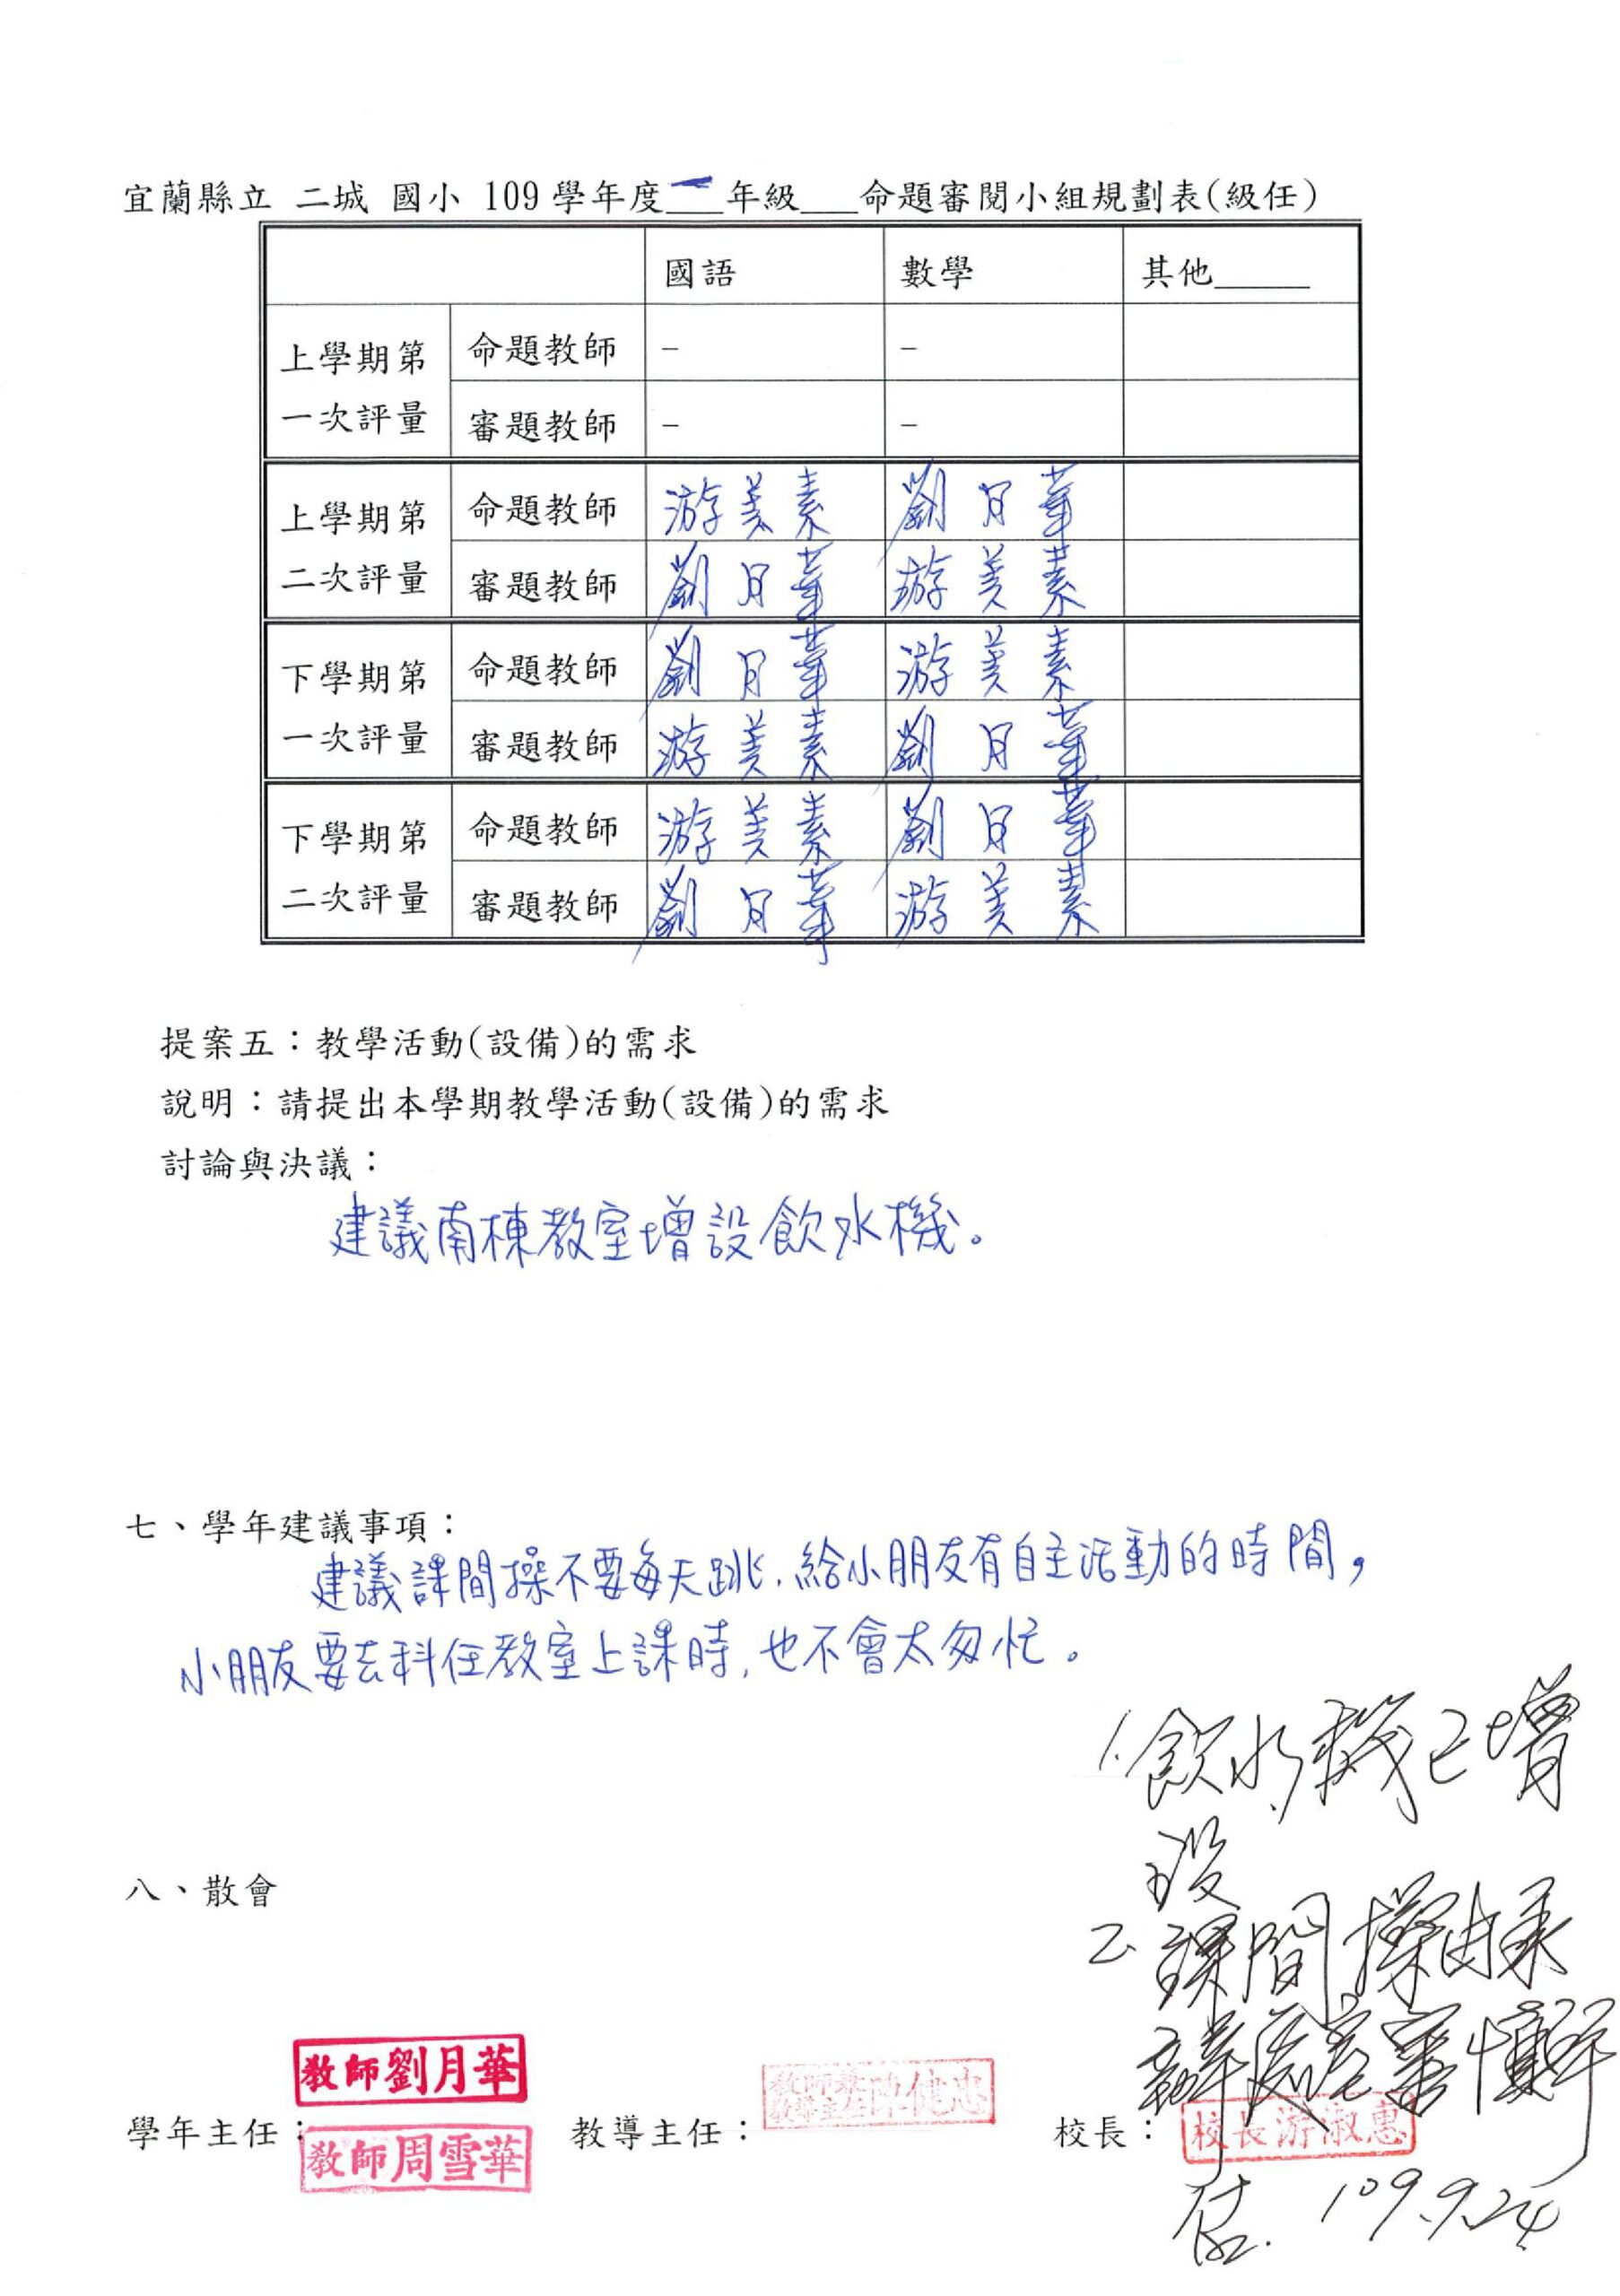 宜蘭縣立 二城 國小 109學年度一年級___命題審閱小組規劃表(級任)
國語 數學 其他_____
上學期第一次評量 命題教師 – –
審題教師 – –
上學期第二次評量 命題教師 游美素 劉月華
審題教師 劉月華 游美素
下學期第一次評量 命題教師 劉月華 游美素
審題教師 游美素 劉月華
下學期第二次評量 命題教師 游美素 劉月華
審題教師 劉月華 游美素
提案五：教學活動(設備)的需求
說明：請提出本學期教學活動(設備)的需求
討論與決議：
建議南棟教室增設飲水機。
七、學年建議事項：
建議課間操不要每天跳，給小朋友有自主活動的時間，
小朋友要去科任教室上課時，也不會太匆忙。
1.飲水機已增
設
2.課間操由承
辦處室審慎評
估.
109.9.24
八、散會
學年主任：
教師劉月華
教師周雪華
教導主任：
陳健忠
校長：
校長游淑惠